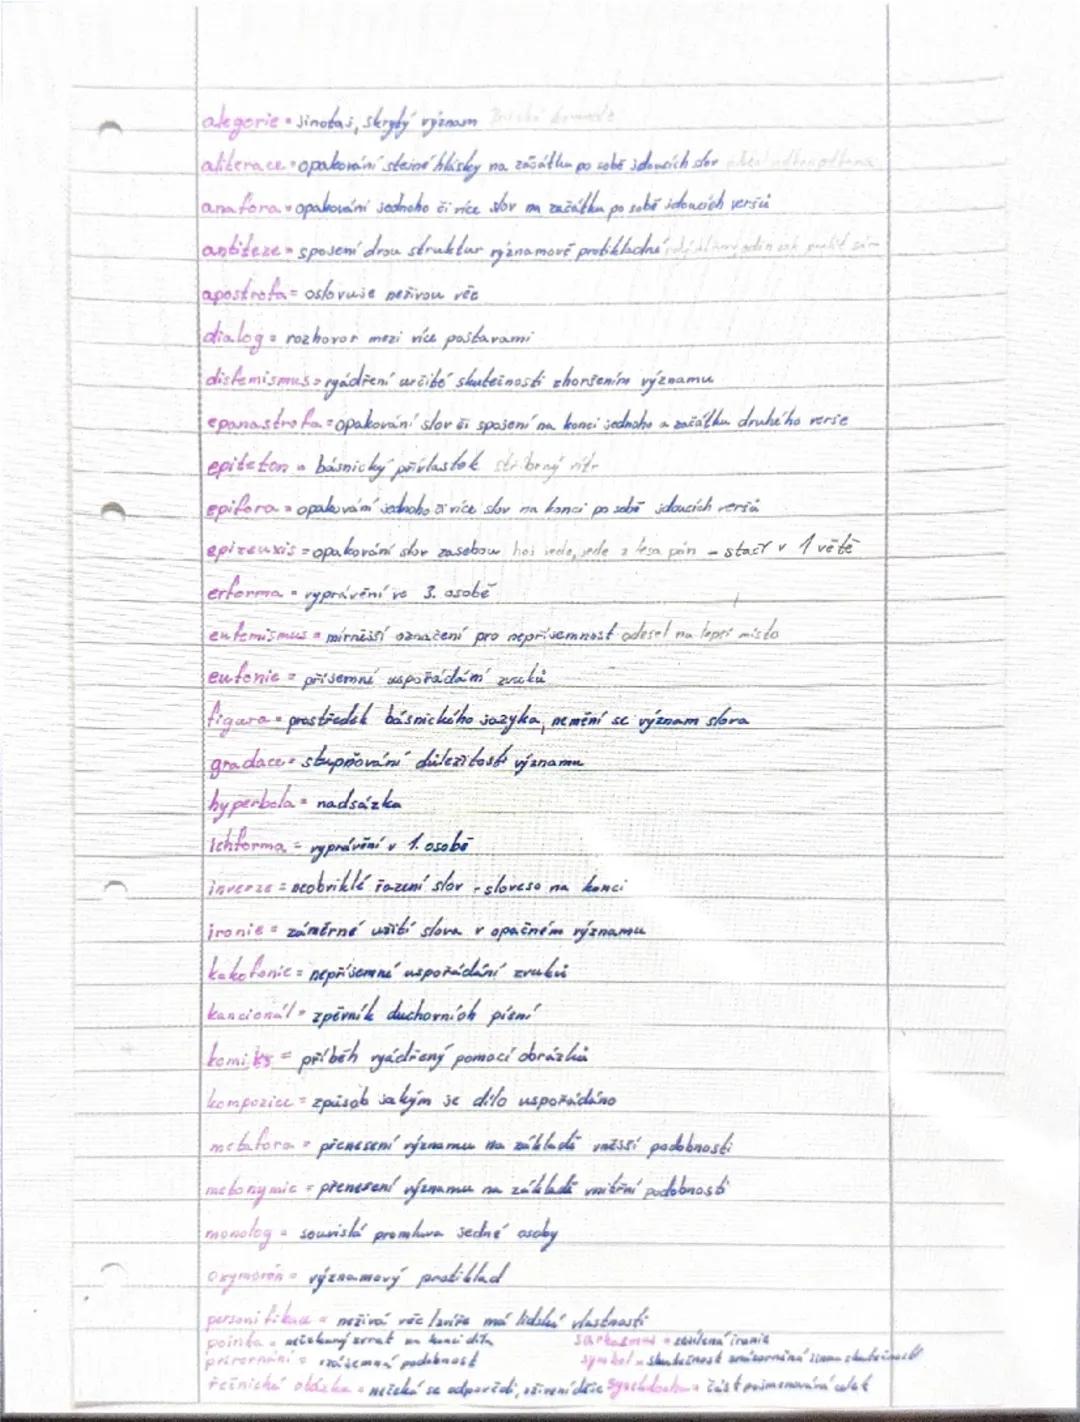 alegorie = jinotaj, skrytý význam
aliterace = opakování stejné hlásky na začátku po sobě jdoucích slov
anafora = opakování jednoho či více slov na začátku po sobě jdoucích veršů
antiteze = spojení dvou struktur významově protikladné
apostrofa = oslovuje neživou věc
dialog = rozhovor mezi více postavami
disfemismus = vyjádření určité skutečnosti zhoršením významu
epanastrofa = opakování slov či spojení na konci jednoho a začátku druhého verše
epiteton = básnický přívlastek stříbrný vítr
epifora = opakování jednoho či více slov na konci po sobě jdoucích veršů
epizeuxis = opakování slov zasebou hoj jede, jede z lesa pán - stačí v 1 větě
erforma = vyprávění ve 3. osobě
eufemismus = mírnější označení pro nepříjemnost odešel na lepší místo
eufonie = příjemné uspořádání zvuků
figura = prostředek básnického jazyka, nemění se význam slova
gradace = stupňování důležitosti významu
hyperbola = nadsázka
Ichforma = vyprávění v 1. osobě
inverze = neobvyklé řazení slov - sloveso na konci
ironie = záměrné užití slova v opačném významu
kakofonie = nepříjemné uspořádání zvuků
kancionál = zpěvník duchovních písní
komiks = příběh vyjádřený pomocí obrázků
kompozice = způsob jakým je dílo uspořádáno
metafora = přenesení významu na základě vnější podobnosti
metonymie = přenesení významu na základě vnitřní podobnosti
monolog = souvislá promluva jedné osoby
oxymorón = významový protiklad
personifikace = neživá věc/zvíře má lidské vlastnosti
pointa = nečekaný zvrat na konci díla sarkasmus = zesílená ironie
přirovnání = vzájemná podobnost symbol = skutečnost znázorněná jinou skutečností
řečnická otázka = nečeká se odpovědi, oživení děje Synekdocha = část pojmenovává celek